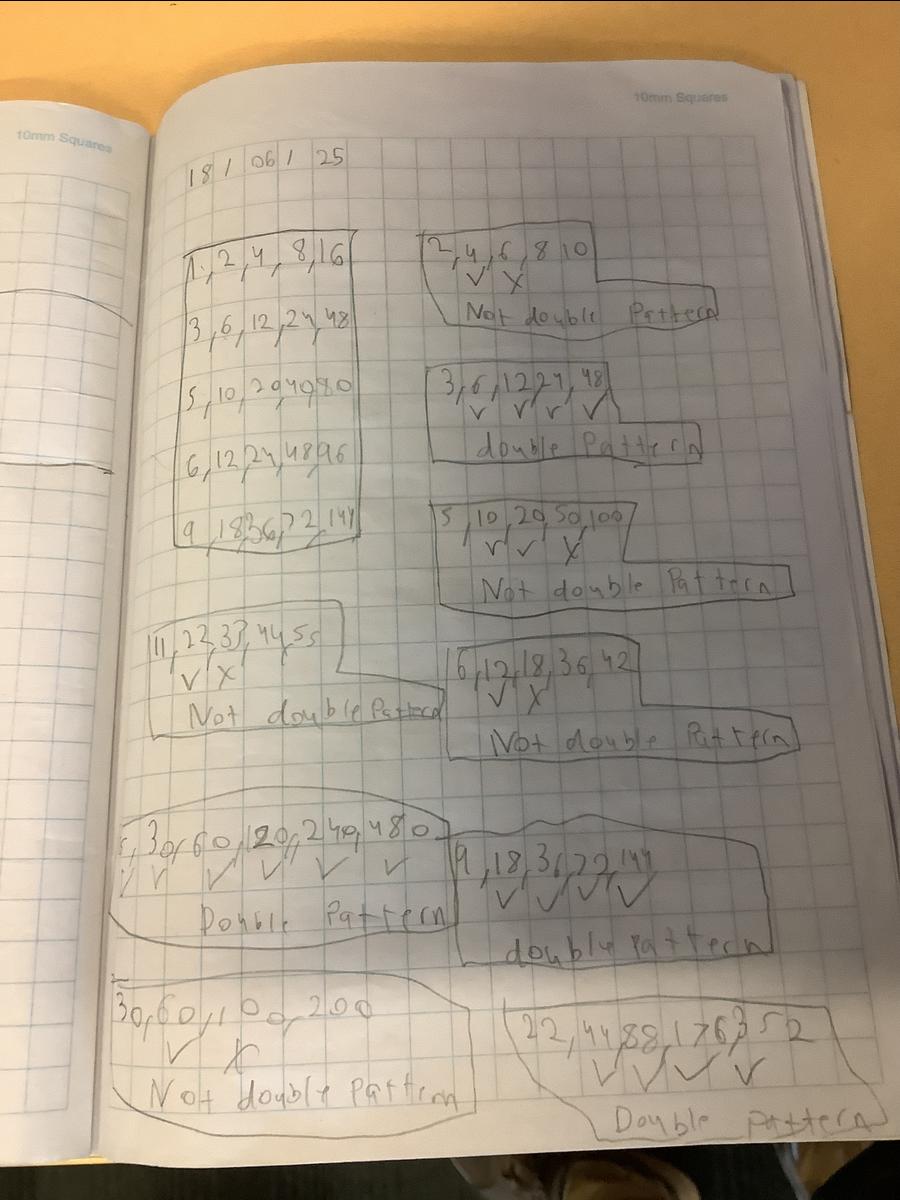 10mm Squares
10mm Squares
18/06/25
1, 2, 4, 8, 16
3, 6, 12, 24, 48
5, 10, 20, 40, 80
6, 12, 24, 48, 96
9, 18, 36, 72, 144
11, 22, 33, 44, 55
✓ X
Not double Pattern
2, 4, 6, 8 10
✓ X
Not double Pattern
3, 6, 12, 24, 48
✓ ✓ ✓ ✓
double Pattern
5, 10, 20, 50, 100
✓ ✓ X
Not double Pattern
6, 12, 18, 36, 42
✓ X
Not double Pattern
30, 60, 120, 240, 480
✓ ✓ ✓ ✓ ✓ ✓
Double Pattern
9, 18, 36, 72, 144
✓ ✓ ✓ ✓
double Pattern
30, 60, 100, 200
✓ X
Not double Pattern
22, 44, 88, 176, 352
✓ ✓ ✓ ✓
Double Pattern